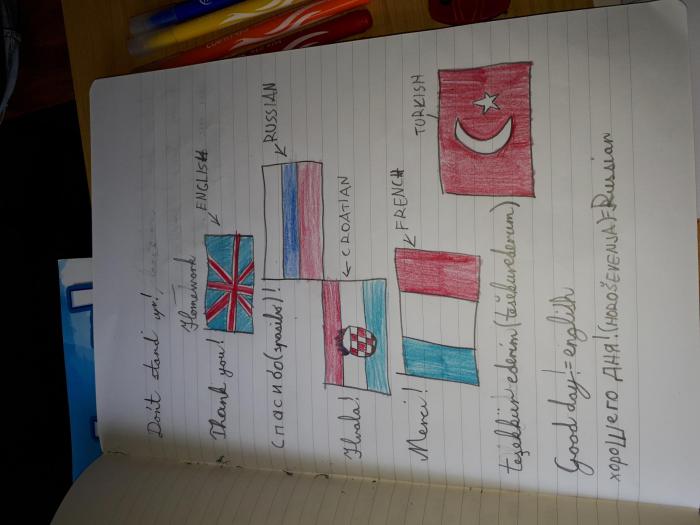 Don't stand up!
Homework
Thank you! ENGLISH
Спасибо (spasibo)! RUSSIAN
Hvala! CROATIAN
Merci! FRENCH
teşekkür ederim (tešekurederum) TURKISH
Good day! = english
хорошего дня! (HOROŠEVENJA) = Russian